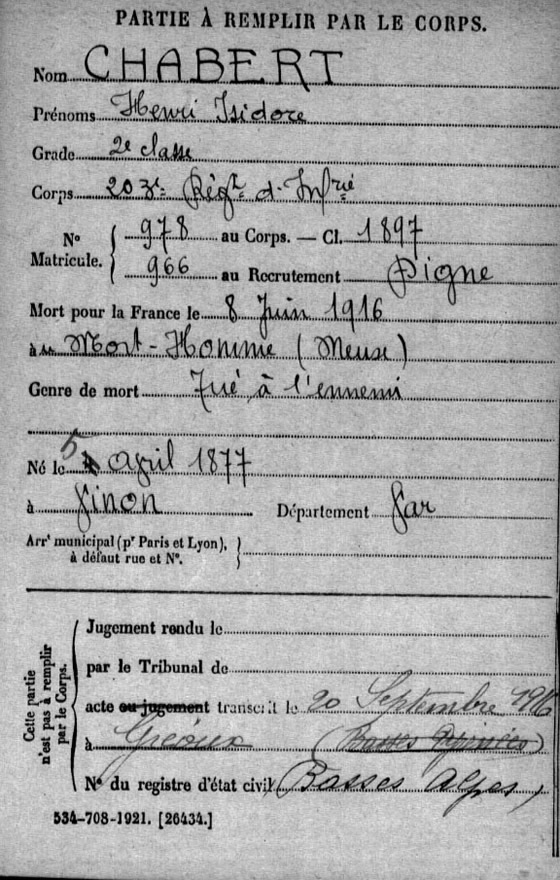 PARTIE À REMPLIR PAR LE CORPS.
Nom CHABERT
Prénoms Henri Isidore
Grade 2e classe
Corps 203e Régt d'Infrie
No Matricule. { 978 au Corps. — Cl. 1897
966 au Recrutement Digne
Mort pour la France le 8 Juin 1916
à au Mort-Homme (Meuse)
Genre de mort Tué à l'ennemi
Né le 5 April 1877
à Vinon Département Var
Arrt municipal (pr Paris et Lyon), à défaut rue et No. }
Cette partie n'est pas à remplir par le Corps.
Jugement rendu le
par le Tribunal de
acte ou jugement transcrit le 20 Septembre 1916
à Gréoux (Basses Pyrénées)
No du registre d'état civil (Basses Alpes)
534-708-1921. [26434.]